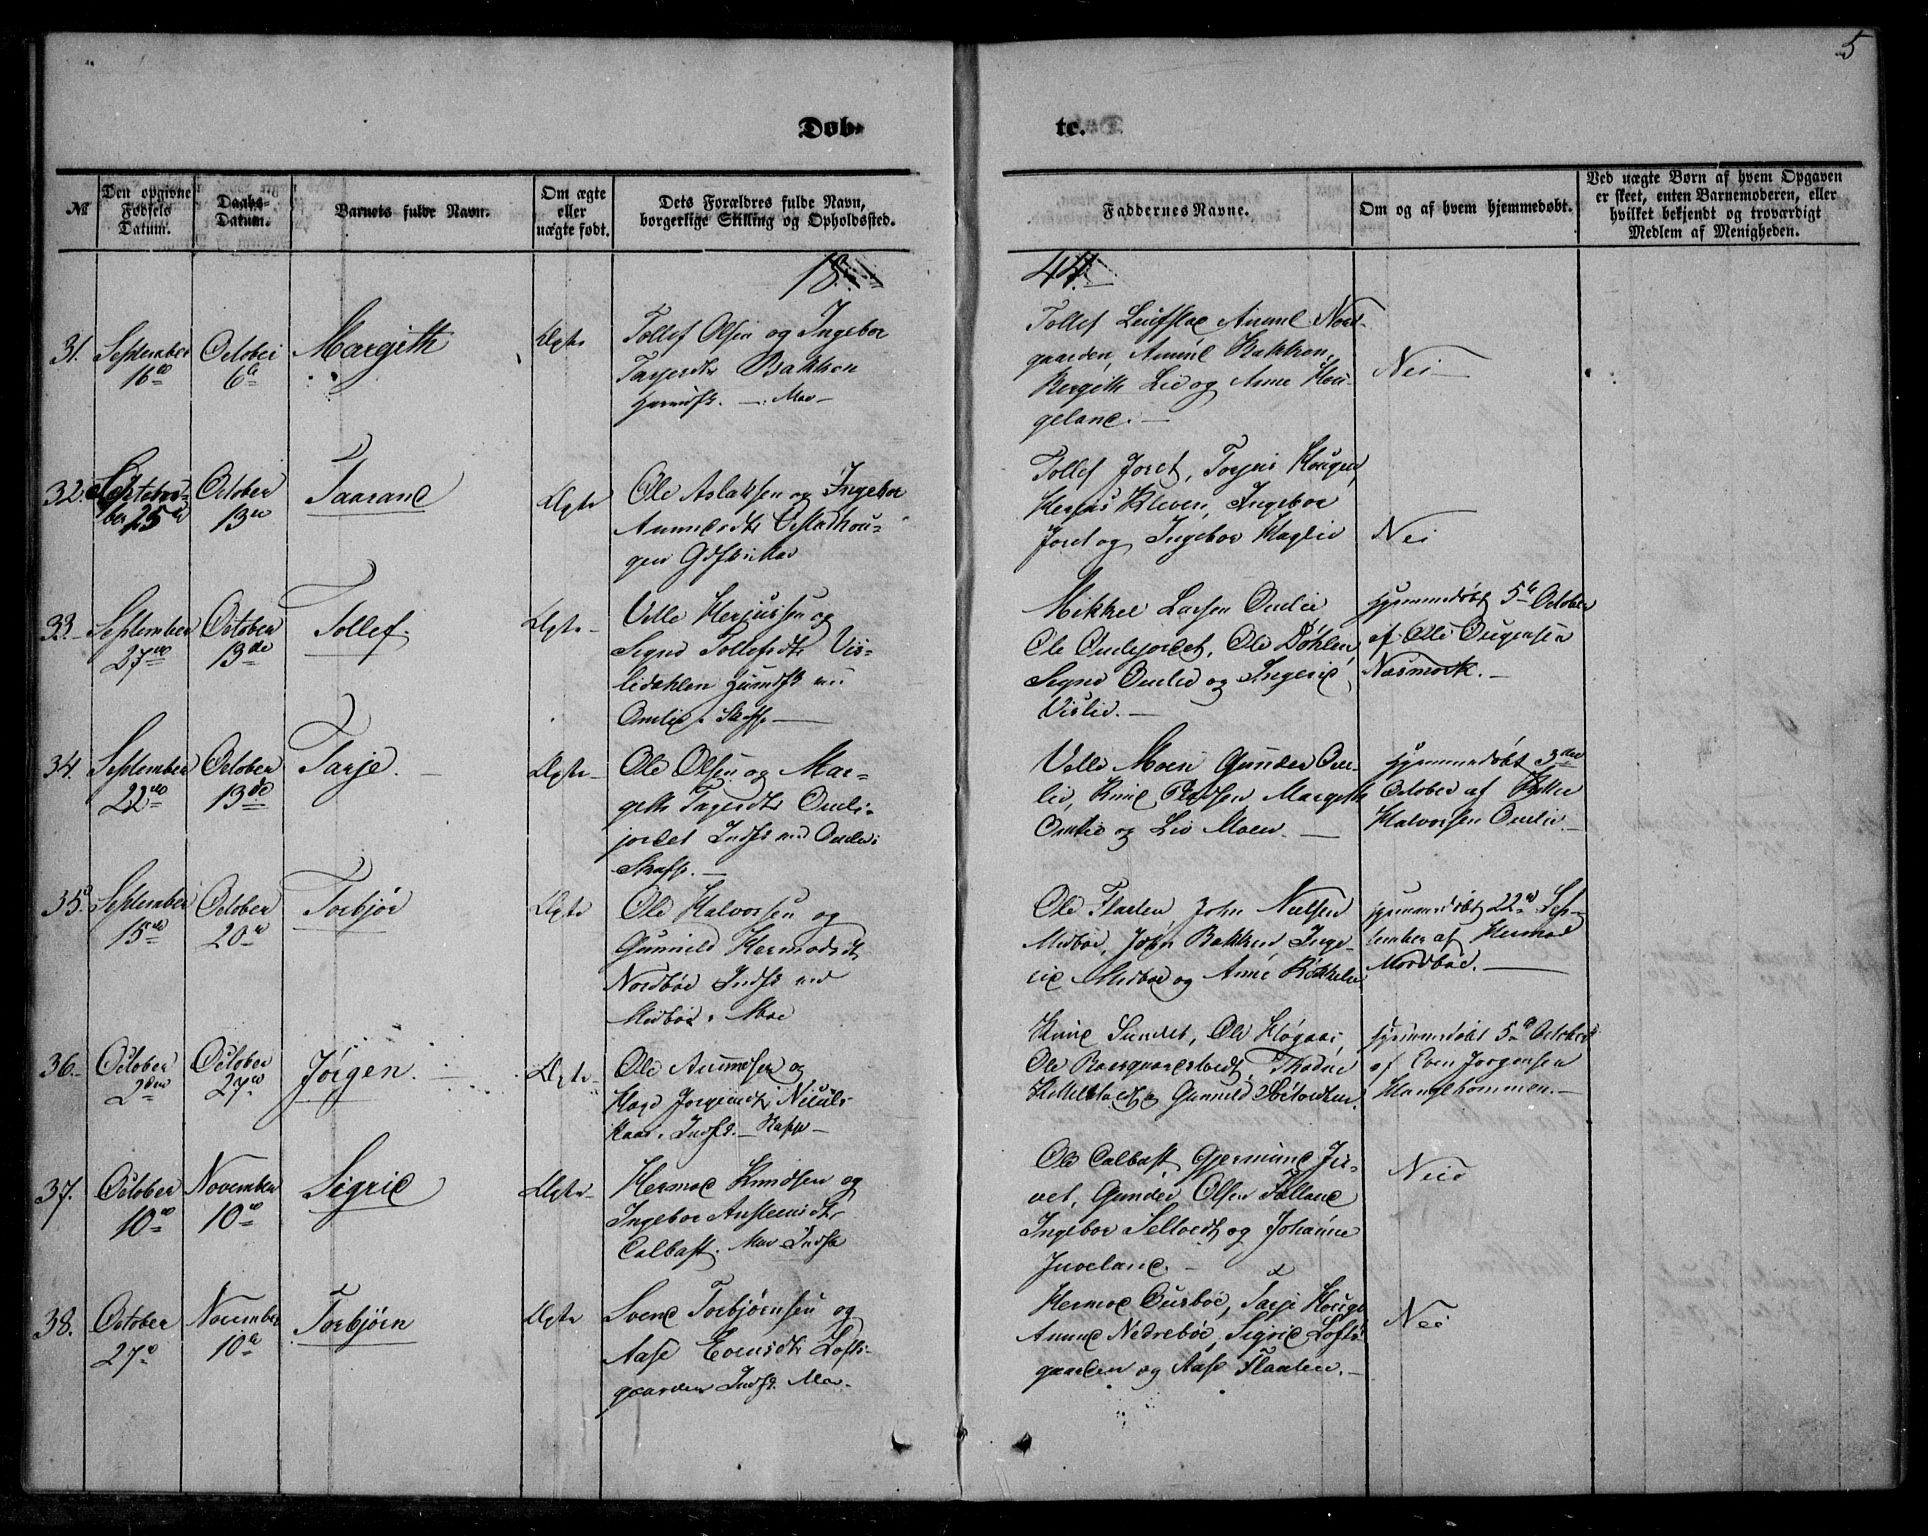 5
Døb-
te.
№
Den opgivne
Fødsels
Datum.
Daabs-
Datum.
Barnets fulde Navn.
Om ægte
eller
uægte født.
Dets Forældres fulde Navn,
borgerlige Stilling og Opholdssted.
Faddernes Navne.
Om og af hvem hjemmedøbt.
Ved uægte Børn af hvem Opgaven
er skeet, enten Barnemoderen, eller
hvilket bekjendt og troværdigt
Medlem af Menigheden.
18
44.
31.
September
16de
October
6te
Margith
Ægte
Tollef Olsen og Ingebor
Tarjesdtr Bakken
Huusmfk. — Moe —
Tollef Leifstad Anund Nord-
gaarden, Anund Bakken,
Bergith Lid og Anne Hou-
geland. —
Nei —
32.
Septem-
ber 25de
October
13de
Taarand
Ægte
Ole Aslaksen og Ingebor
Anundsdtr Østerhou-
gen Gdfk i Moe
Tollef Joret, Torjus Hougen,
Herjus Kleven, Ingebor
Joret og Ingebor Haglid
Nei
33.
September
27de
October
13de
Tollef
Ægte —
Villu Herjussen og
Signe Tollefsdtr Vis-
lidahlen Huusmfk
Omlid i Skafs. —
Mikkel Larsen Omlid
Ole Omlijordet, Ole Døhlen,
Signe Omlid og Ingerid
Vislid. —
Hjemmedøbt 5te October
af Ole Ougensen
Næsmork. —
34.
September
22de
October
13de
Tarje. —
Ægte —
Ole Olsen og Mar-
geth Tarjesdtr Omli-
jordet Indfk ved Omlid i
Skafs. —
Villu Moen Gunder Om-
lid, Knud Margeth
Omlid og Liv Moen. —
Hjemmedøbt 3den
October af
Halvorsen Omlid —
35.
September
15de
October
20de
Torbjør
Ægte
Ole Halvorsen og
Gunnild Hermodsdtr
Nordbøe Indfk ved
Midbøe i Moe
Ole Flaten, John Nielsen
Midbøe, John Bakken, Inge-
rid Midbøe og Anne
Hjemmedøbt 22de Sep-
tember af Hermod
Nordbøe. —
36.
October
2den
October
27de
Jørgen. —
Ægte —
Ole Anundsen og
Hæge Jørgensdtr
Indfk. —
Knud Sundet, Ole
Ole
og Gunnild
Hjemmedøbt 5te October
af Even Jørgensen
37.
October
10de
November
10de
Sigrid
Ægte —
Hermod Knudsen og
Ingebor Austensdtr
Calbast. Moe Indfk
Ole Calbast, Gjermund Ju-
vet, Gunder Olsen Tolland
Ingebor og Johanne
Juveland. —
Neie
38.
October
27de
November
10de
Torbjørn
Ægte
Svend Torbjørnsen og
Aase Evensdtr Lofts-
gaarden Indfk. Moe.
Hermod Ousbøe, Tarje Houge
Anund Nedrebøe, Sigrid Lofts-
gaarden og Aase Flaaten. —
Nei